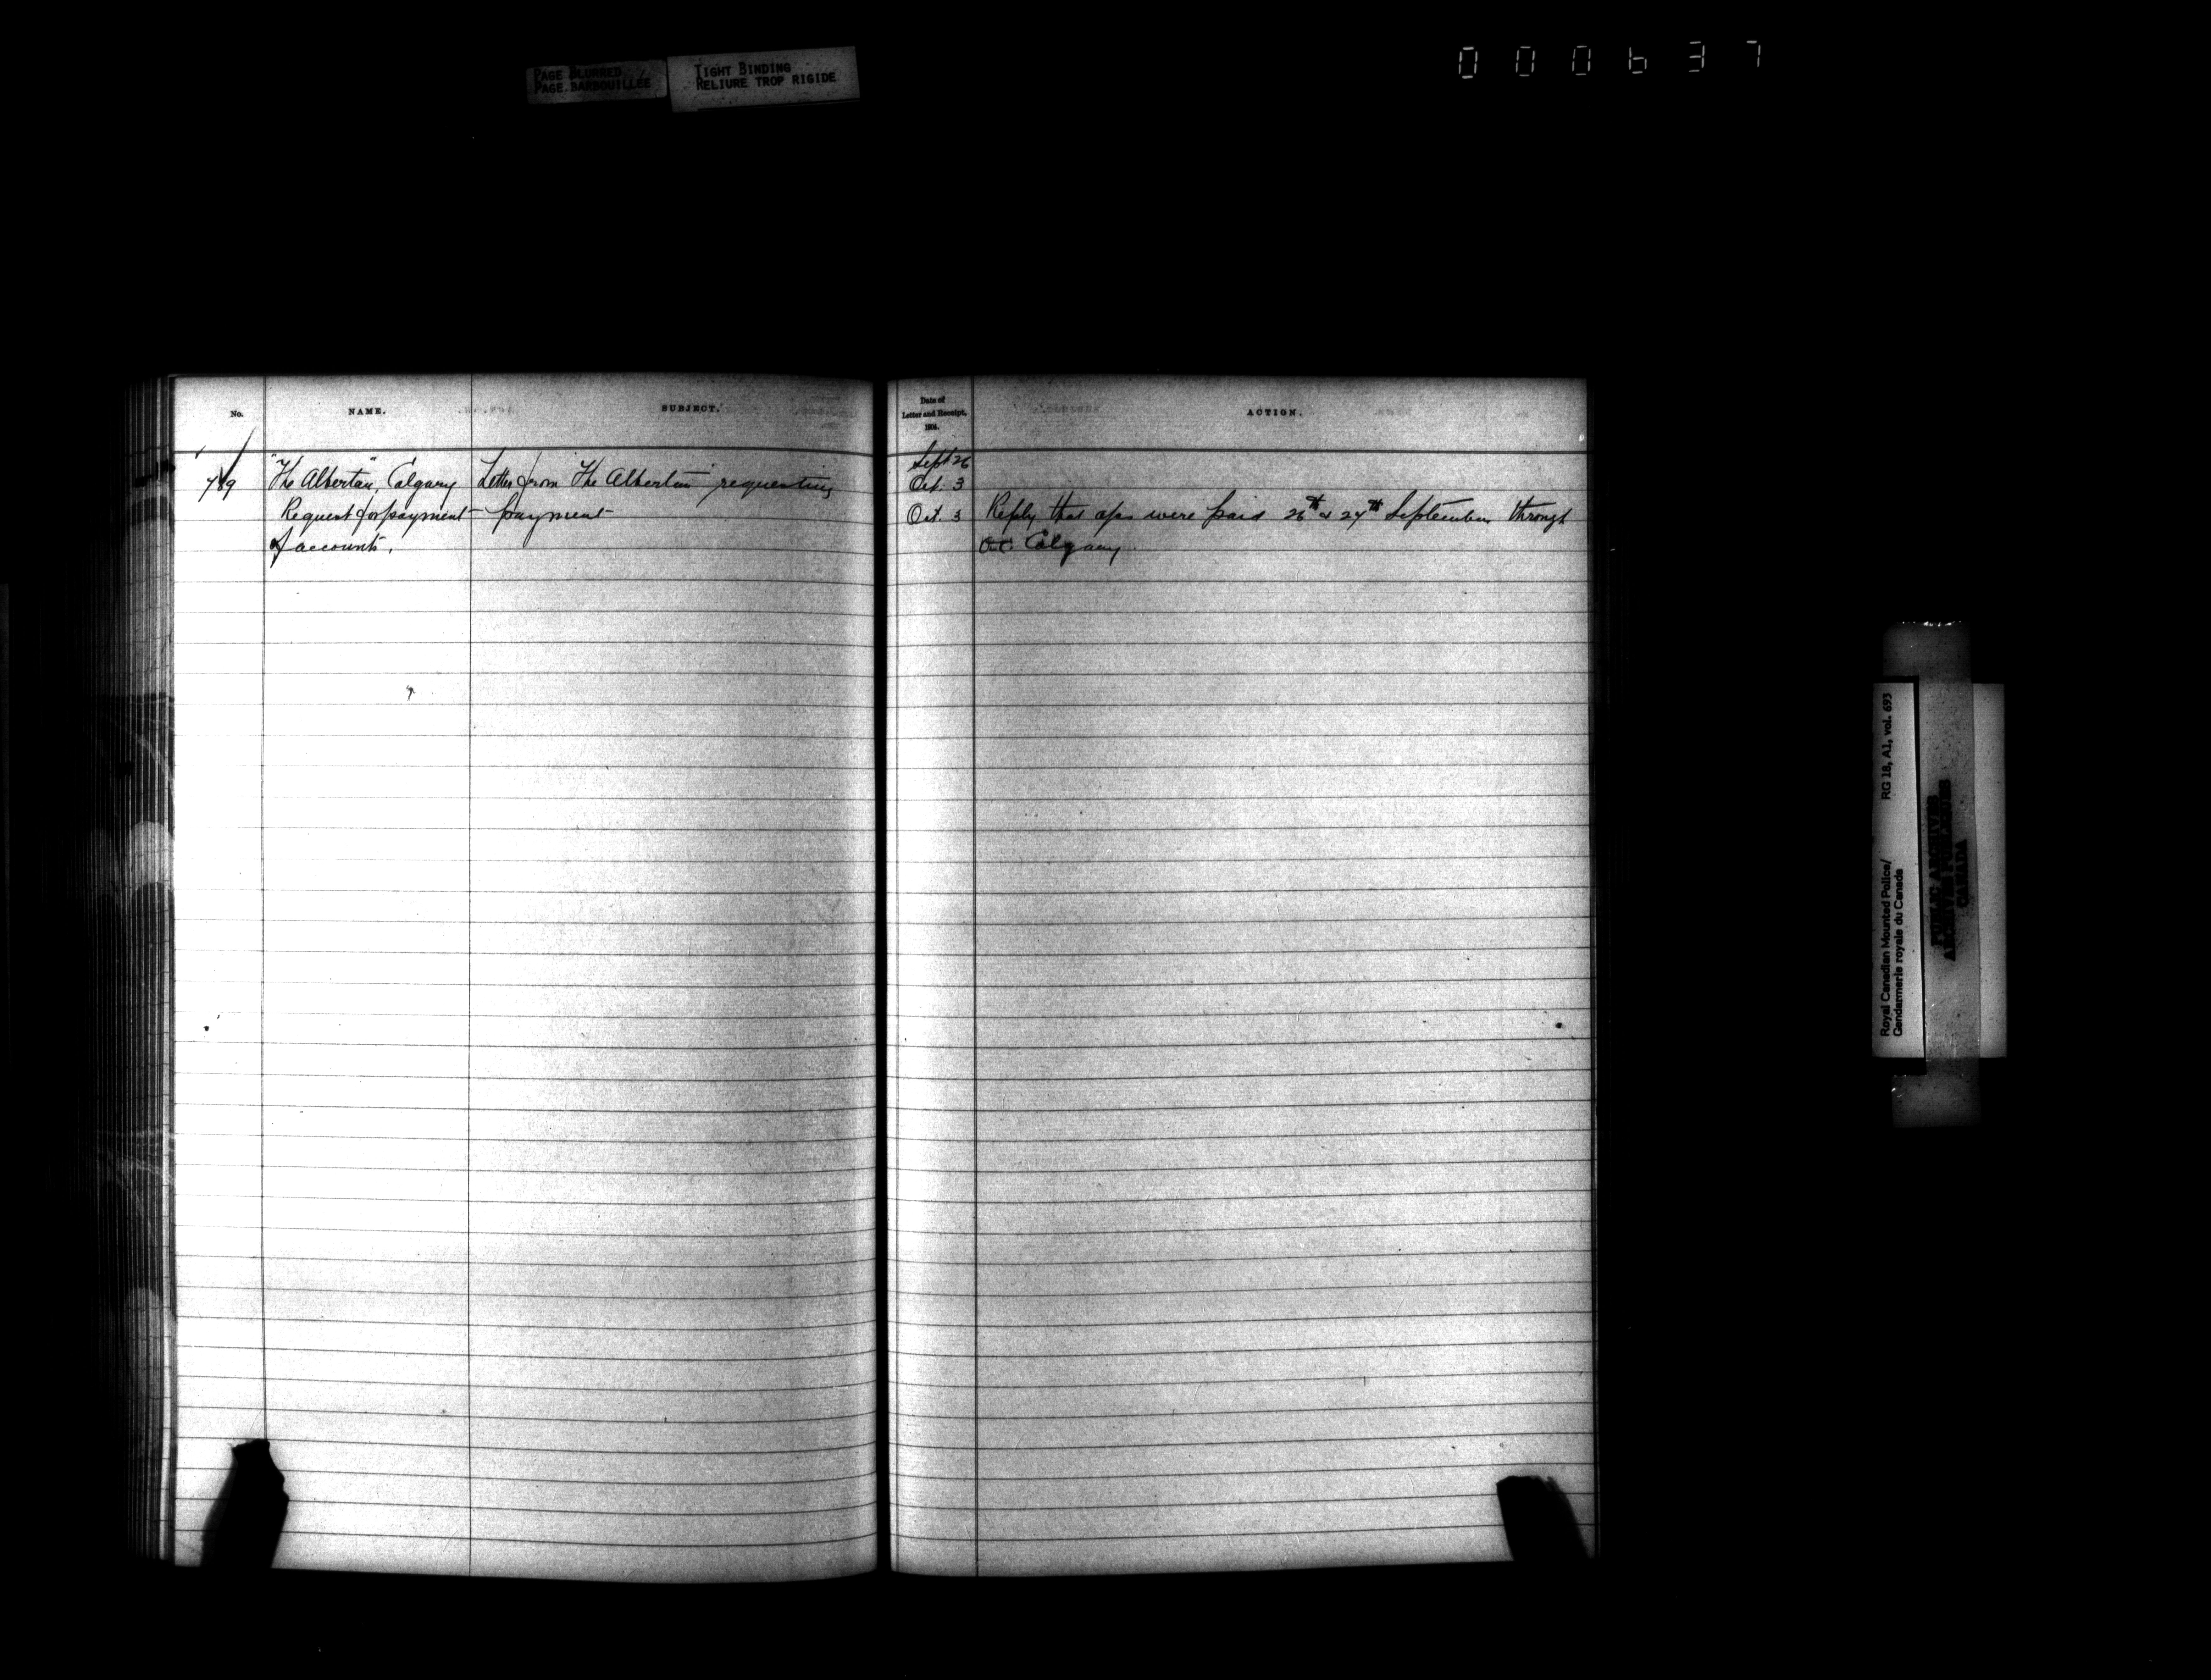 PAGE BLURRED
PAGE BARBOUILLEE
TIGHT BINDING
RELIURE TROP RIGIDE
000637
No. NAME. SUBJECT.
Date of
Letter and Receipt,
1904.
ACTION.
Sept 26
789 "The Albertan", Calgary Letter from "The Albertan" requesting Oct. 3
Request for payment payment Oct. 3 Reply that were paid 26th & 27th September through
of accounts. O.C. Calgary.
Royal Canadian Mounted Police/ RG 18, A1, vol. 693
Gendarmerie royale du Canada
PUBLIC ARCHIVES
ARCHIVES PUBLIQUES
CANADA